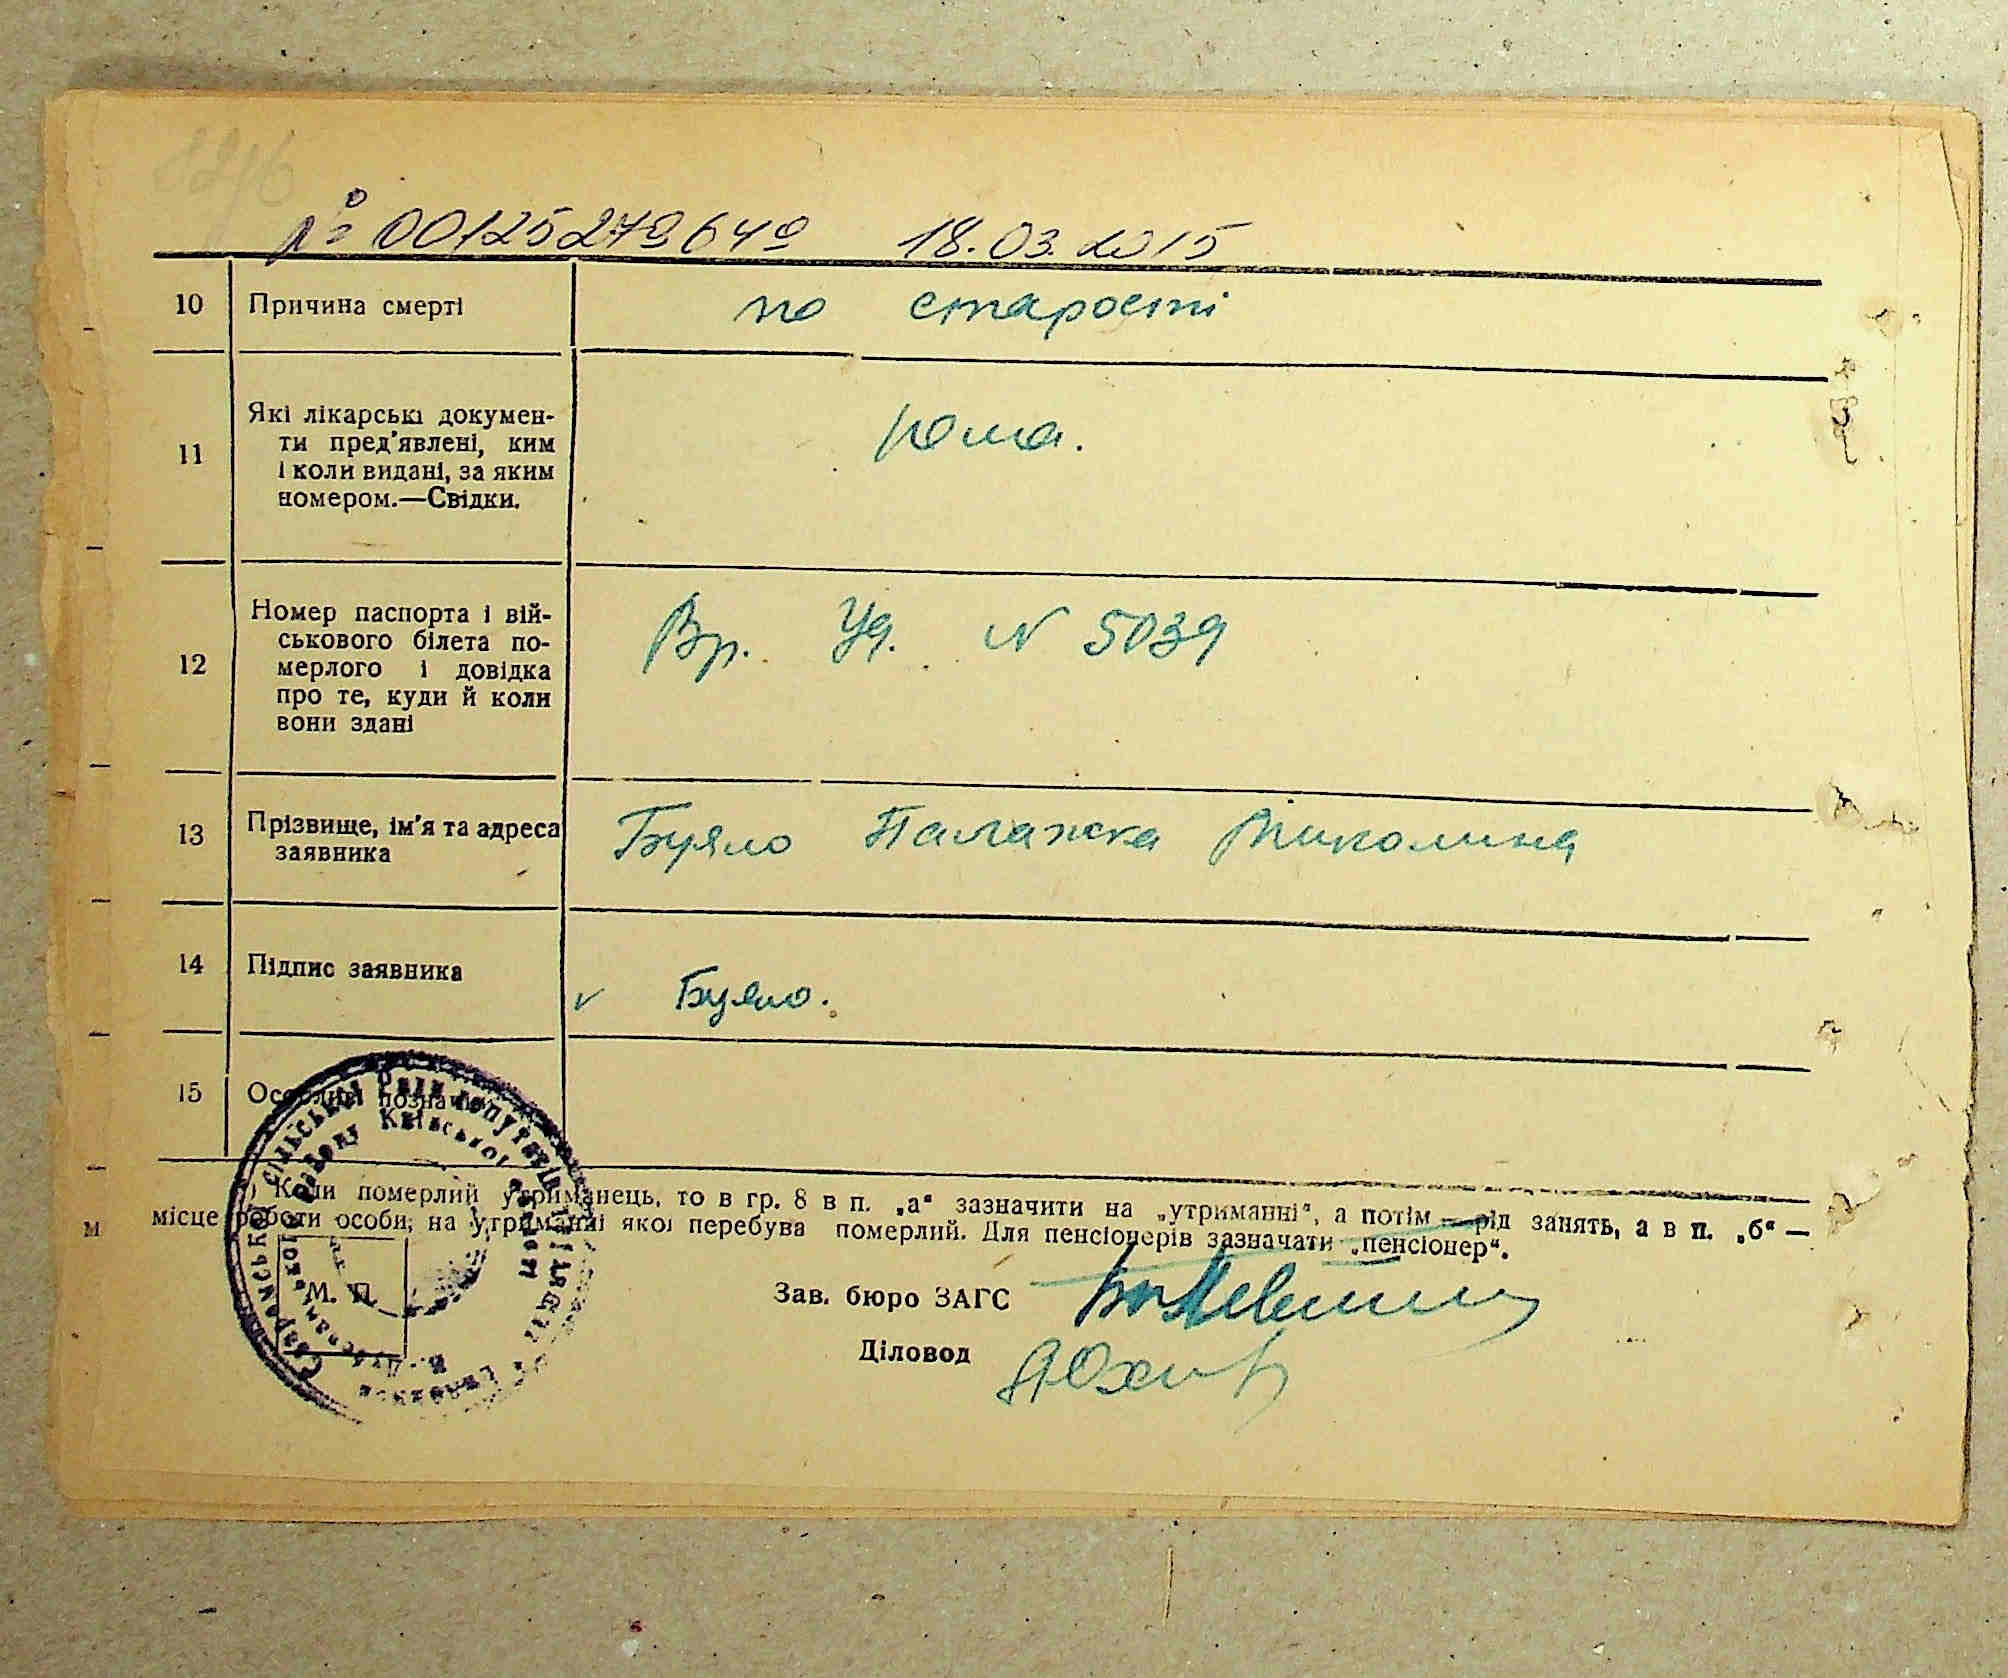 № 00125279649 18.03.2015
10 Причина смерті по старості
11 Які лікарські докумен-
ти пред'явлені, ким
і коли видані, за яким
номером.—Свідки.
12 Номер паспорта і вій-
ськового білета по-
мерлого і довідка
про те, куди й коли
вони здані
Вр. Уд. N 5039
13 Прізвище, ім'я та адреса
заявника
Буяло Палажка Миколина
14 Підпис заявника Буяло.
15 Особливі позначки
Коли померлий утриманець, то в гр. 8 в п. „а“ зазначити на „утриманні“, а потім — рід занять, а в п. „б“ —
місце роботи особи, на утриманні якої перебува померлий. Для пенсіонерів зазначати „пенсіонер“.
М. П.
Зав. бюро ЗАГС
Діловод
сільської Ради депутатів
району Київської
м